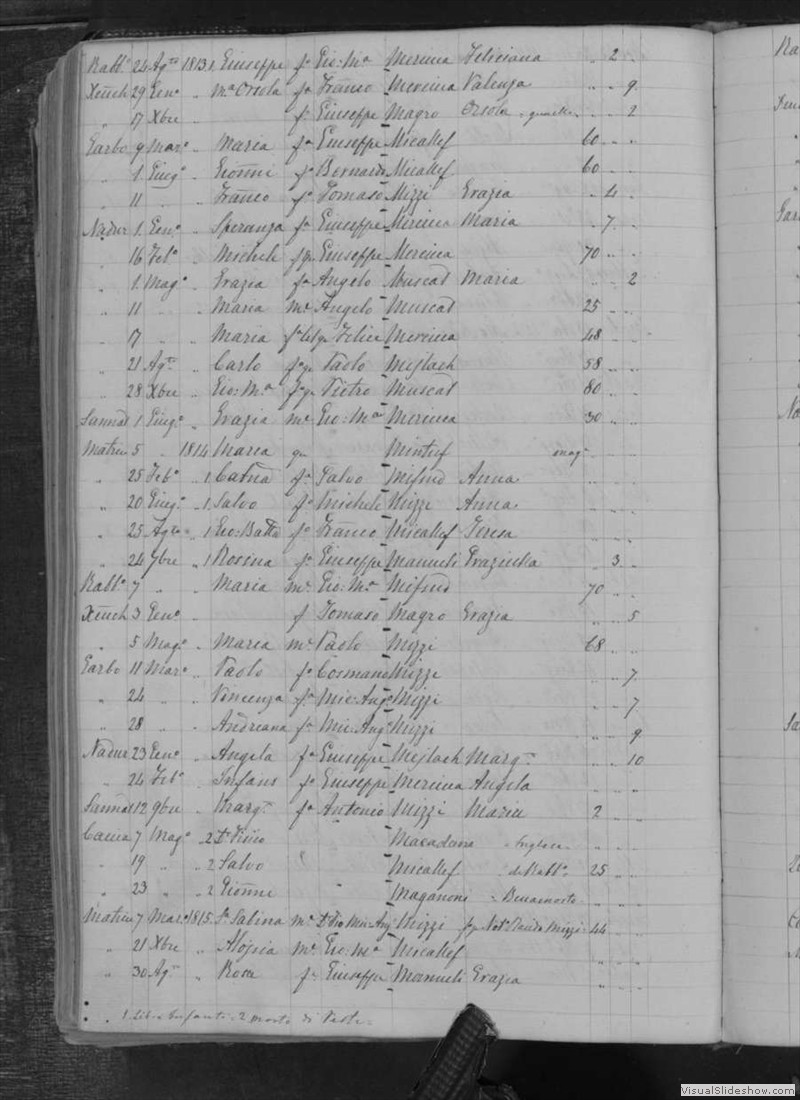 Rabbo 24 Agto 1813 1 Giuseppe fo Gio: Ma Mercieca Feliciana " 2 "
Xeuch 29 Geno " Ma Orsola fa Franco Mercieca Valenza " " 9
" 17 Xbre " fo Giuseppe Magro Orsola " " 2
Garbo 9 Maro " Maria fa Giuseppe Micallef 60 " "
" 1 Giugo " Gionni fo Bernardo Micallef 60 " "
" 11 " " Franco fo Tomaso Mizzi Grazia " 4 "
Nadur 1 Geno " Speranza fa Giuseppe Mercieca Maria " 7 "
" 16 Febo " Michele Giuseppe Mercieca 70 " "
" 1 Mago " Grazia fa Angelo Muscat Maria " " 2
" 11 " " Maria me Angelo Muscat 25 " "
" 17 " " Maria fa Felice Mercieca 48 " "
" 21 Agto " Carlo Paolo Mejlach 58 " "
" 28 Xbre " Gio: Ma Pietro Muscat 80 " "
Sannat 1 Giugo " Grazia me Gio: Ma Mercieca 30 " "
Matrice 5 " 1814 Maria qm Mintuf mag " "
" 25 Febo " 1 Catna fa Salvo Mifsud Anna " " "
" 20 Giugo " 1 Salvo fo Michele Mizzi Anna " " "
" 25 Agto " 1 Gio: Batta fo Franco Micallef Teresa " " "
" 24 7bre " 1 Rosina fa Giuseppe Manueli Graziulla " 3 "
Rabbo 7 " " Maria me Gio: Ma Mifsud 70 " "
Xeuch 3 Geno " f Tomaso Magro Grazia " " 5
" 5 Mago " Maria me Paolo Mizzi 68 " "
Garbo 11 Maro " Paolo fo Cosmano Mizzi " " 7
" 24 " " Vincenza fa Mic: Ango Mizzi " " 7
" 28 " " Andreana fa Mic: Ango Mizzi " " 9
Nadur 23 Geno " Angela fa Giuseppe Mejlach Marga " " 10
" 24 Febo " Infans fo Giuseppe Mercieca Angela " " "
Sannat 12 9bre " Marga fa Antonio Mizzi Maria 2 " "
7 Mago " 2 Macadana Inglese " " "
" 19 " " 2 Salvo Micallef di Rabbo 25 " "
" 23 " " 2 Gionni " Maganoni " " "
Matrice 7 Maro 1815 Sa Sabina me Mizzi Mizzi 44 " "
" 21 Xbre " Alojsia me Gio: Ma Micallef " "
" 30 Agto " Rosa fa Giuseppe Manueli Grazia " "
1 Infanti. 2 morto di Peste
Rabb
Gar
No
Sa
VisualSlideshow.com